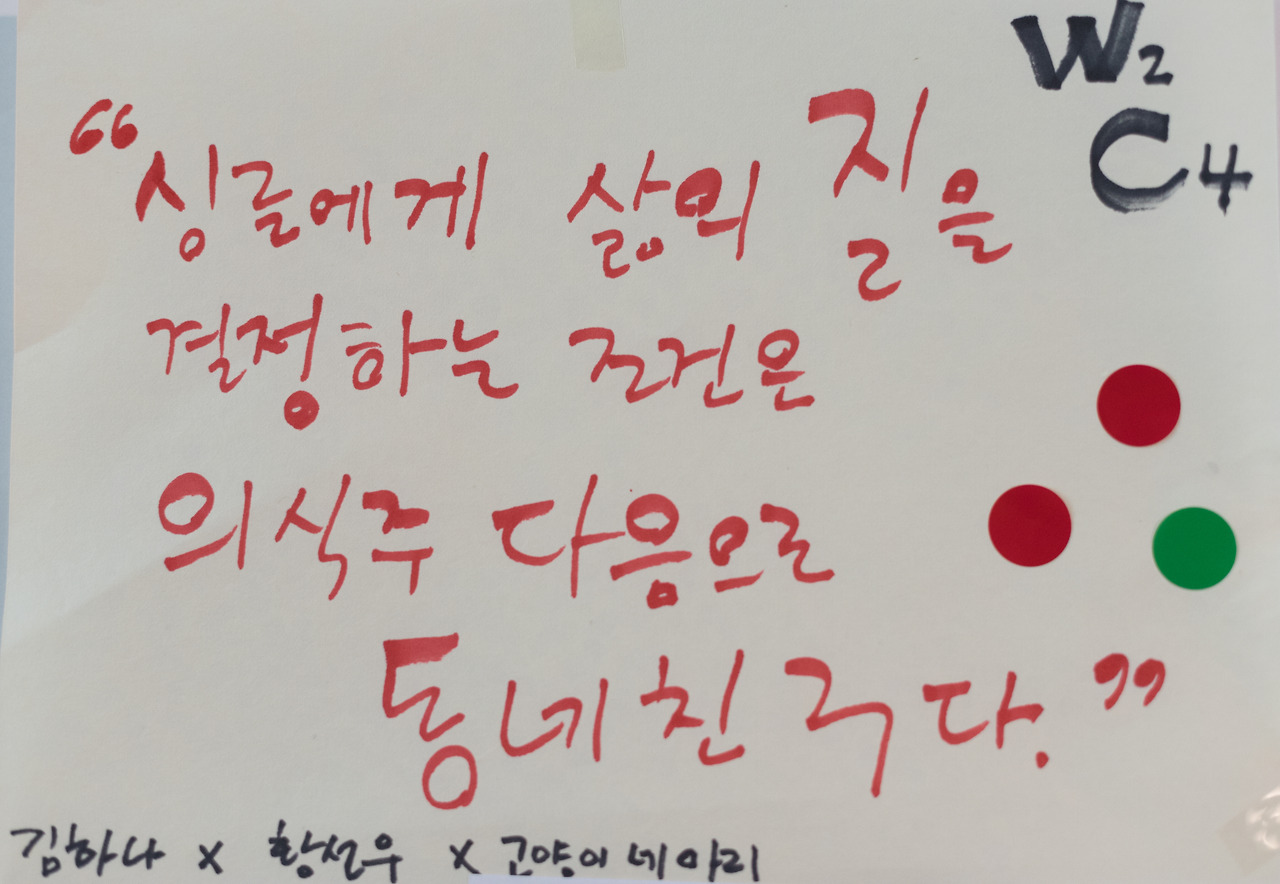 W2
C4
“싱글에게 삶의 질을
결정하는 조건은
의식주 다음으로
동네친구다.”
김하나 x 황선우 x 고양이 네 마리